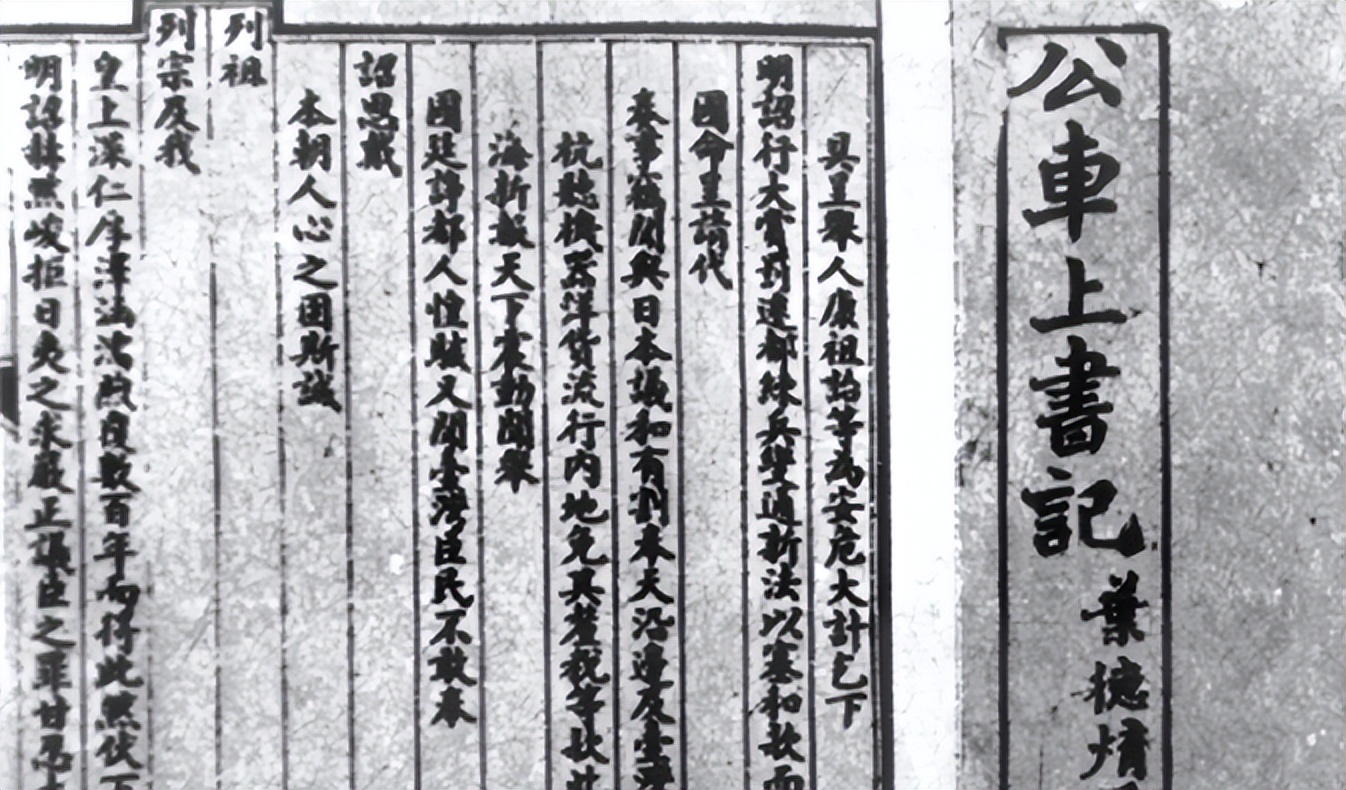 公車上書記 葉德
具呈舉人康祖詒等為安危大計乞下
明詔行大賞罰遷都練兵變通新法以塞和款而
國命呈請代
奏事竊聞與日本議和有割奉天沿邊及臺灣
杭聽機器洋貨流行內地免其釐稅等款此
海新報天下震動聞舉
國廷諍都人惶駭又聞臺灣臣民不敢奉
詔思戴
本朝人心之固斯誠
列祖
列宗及我
皇上深仁厚澤涵濡煦覆數百年而得此然伏下
明詔赫然峻拒日夷之求嚴正議臣之罪甘忍